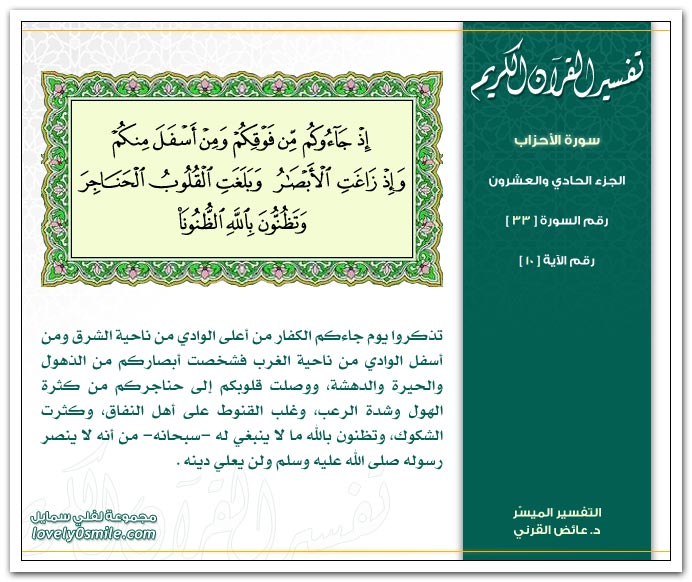 تفسير القرآن الكريم
سورة الأحزاب
الجزء الحادي والعشرون
رقم السورة [ ٣٣ ]
رقم الآية [ ١٠ ]
إِذْ جَآءُوكُم مِّن فَوْقِكُمْ وَمِنْ أَسْفَلَ مِنكُمْ
وَإِذْ زَاغَتِ ٱلْأَبْصَٰرُ وَبَلَغَتِ ٱلْقُلُوبُ ٱلْحَنَاجِرَ
وَتَظُنُّونَ بِٱللَّهِ ٱلظُّنُونَا۠
تذكروا يوم جاءكم الكفار من أعلى الوادي من ناحية الشرق ومن
أسفل الوادي من ناحية الغرب فشخصت أبصاركم من الذهول
والحيرة والدهشة، ووصلت قلوبكم إلى حناجركم من كثرة
الهول وشدة الرعب، وغلب القنوط على أهل النفاق، وكثرت
الشكوك، وتظنون بالله ما لا ينبغي له –سبحانه– من أنه لا ينصر
رسوله صلى الله عليه وسلم ولن يعلي دينه .
تفسير القرآن الكريم
التفسير الميسّر
د. عائض القرني
مجموعة لفلي سمايل
lovely0smile.com